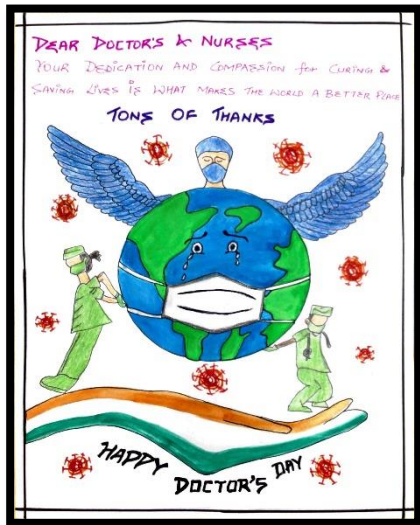 DEAR DOCTOR'S & NURSES
YOUR DEDICATION AND COMPASSION for CURING &
SAVING LIVES IS WHAT MAKES THE WORLD A BETTER PLACE
TONS OF THANKS
HAPPY DOCTOR'S DAY